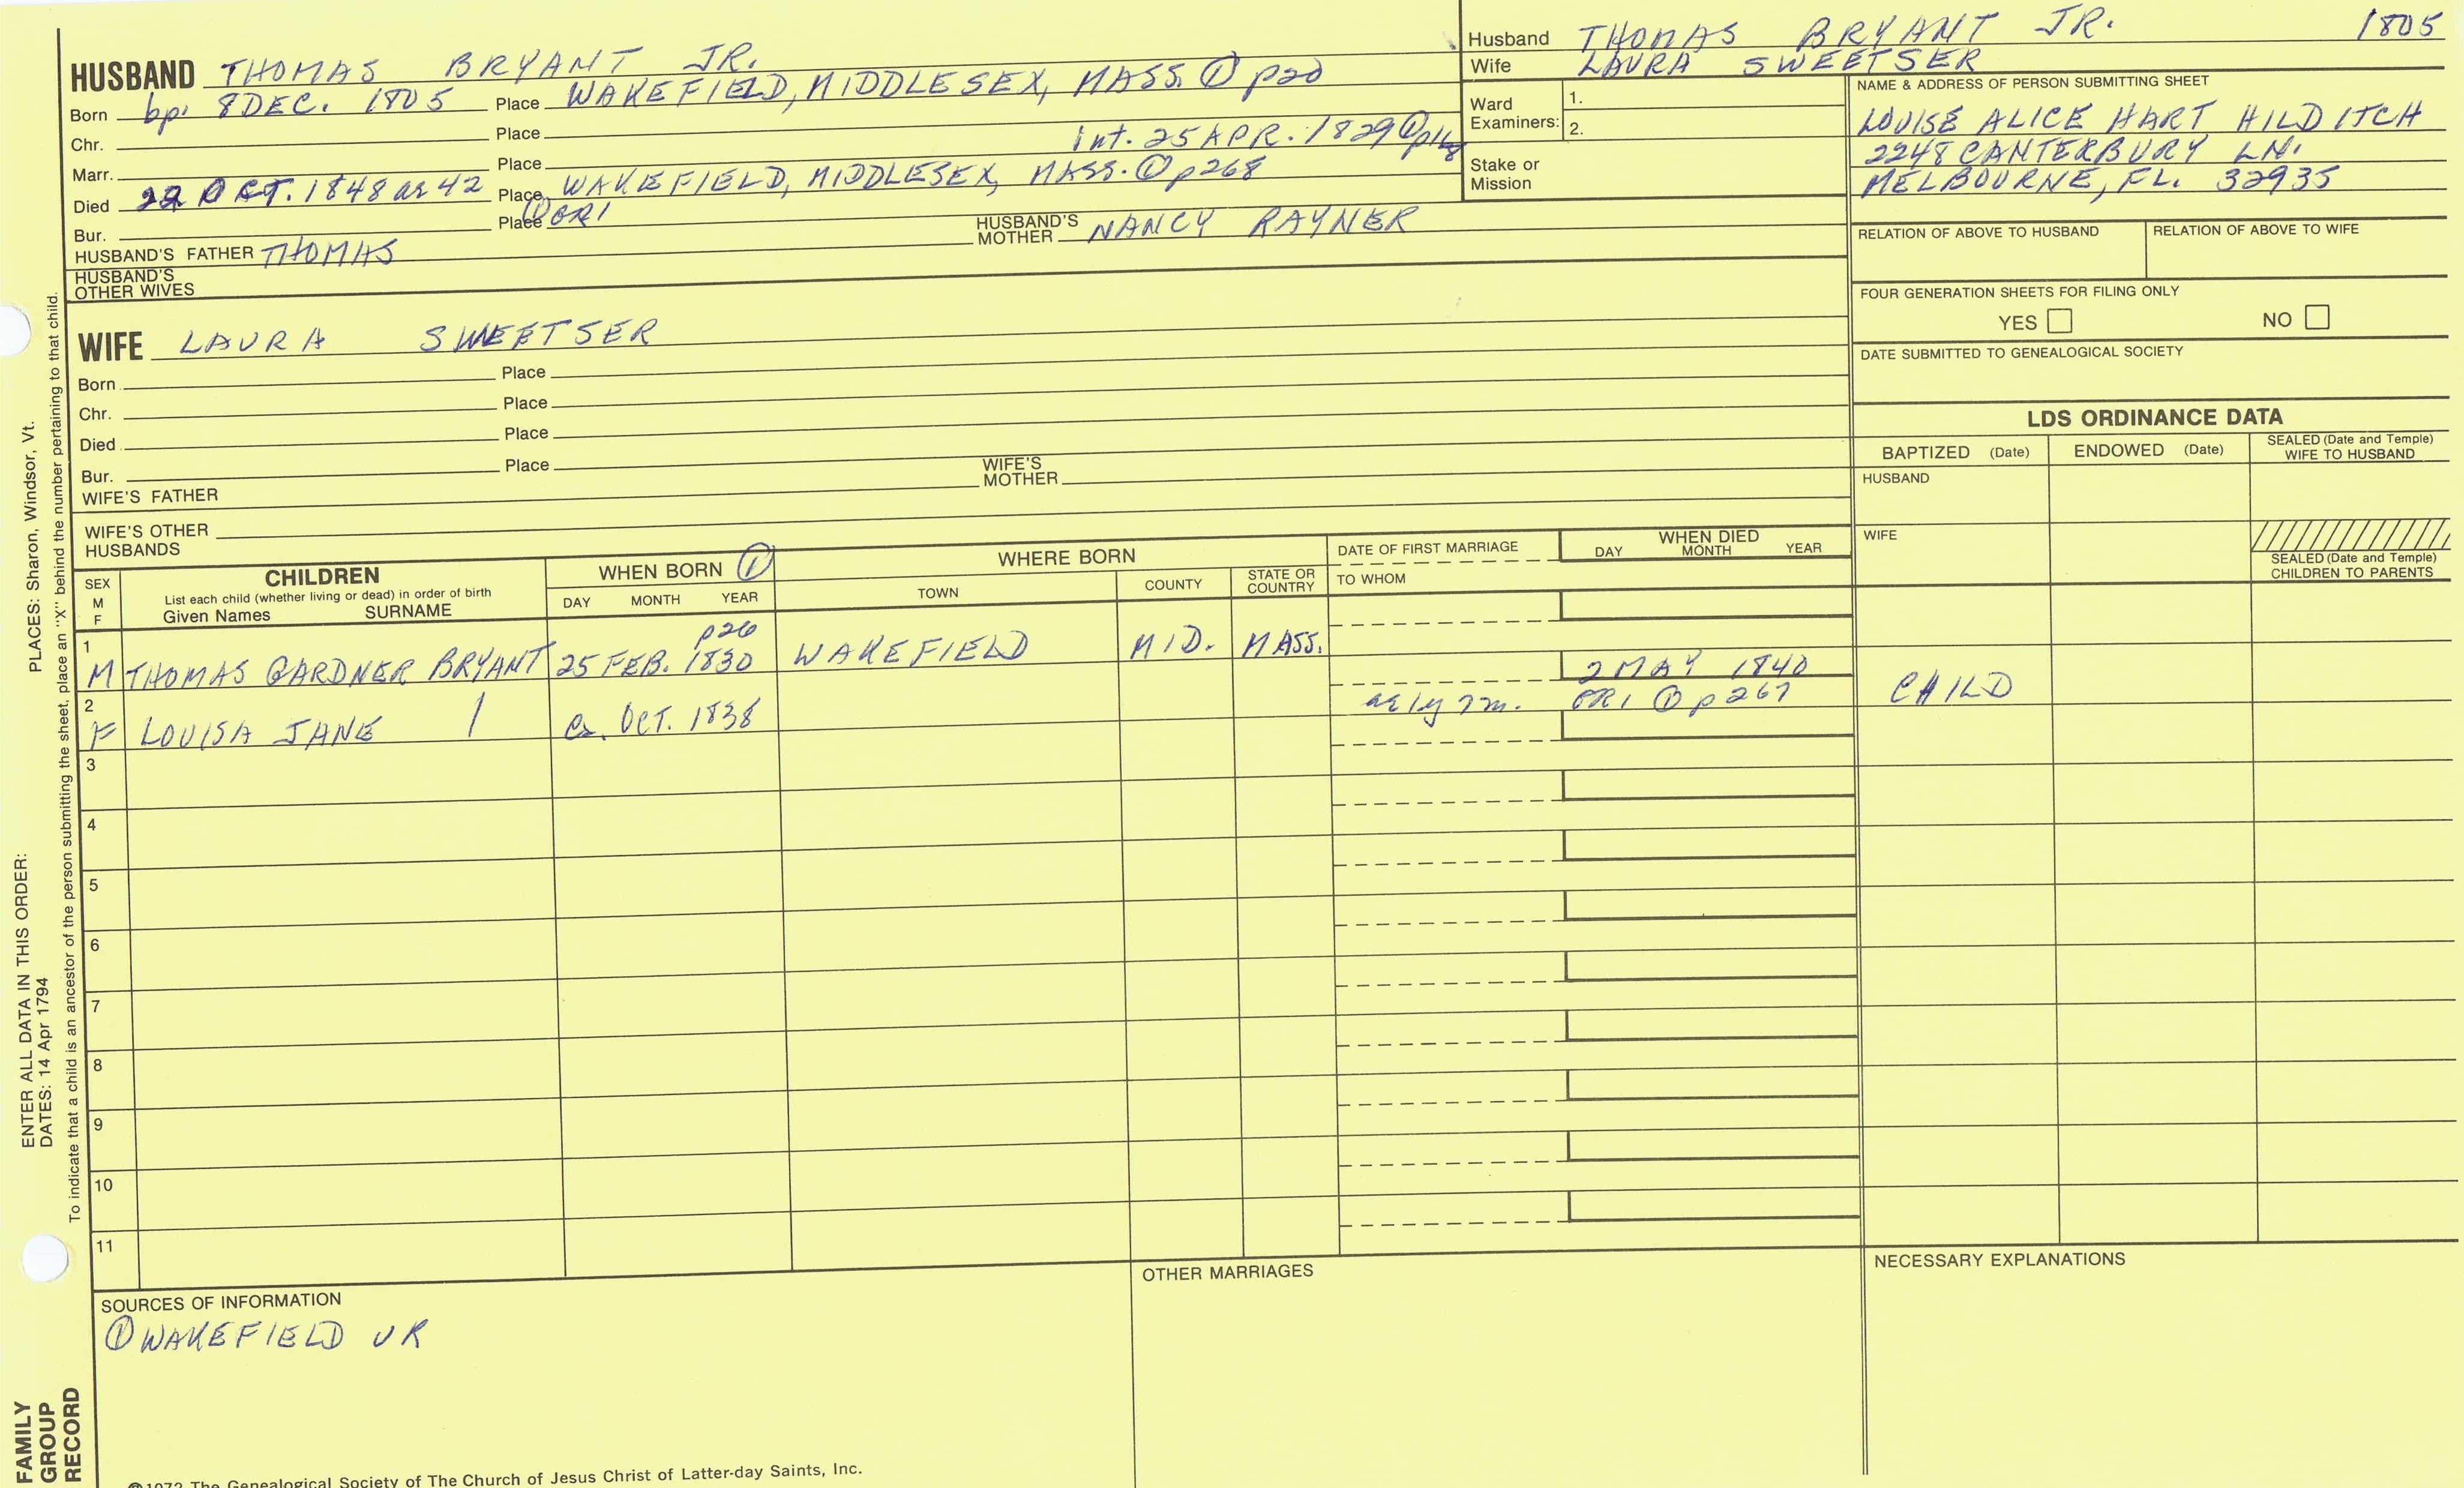 Husband THOMAS BRYANT JR. 1805
Wife LAURA SWEETSER
HUSBAND THOMAS BRYANT JR.
Born bp. 8 DEC. 1805 Place WAKEFIELD, MIDDLESEX, MASS. ① p20
Chr. Place
Marr. Place Int. 25 APR. 1829 ①
Died 22 OCT. 1848 ae 42 Place WAKEFIELD, MIDDLESEX, MASS. ① p268
Bur. Place ① CR1
HUSBAND'S FATHER THOMAS HUSBAND'S MOTHER NANCY RAYNER
HUSBAND'S
OTHER WIVES
Ward
Examiners: 1.
2.
Stake or
Mission
NAME & ADDRESS OF PERSON SUBMITTING SHEET
LOUISE ALICE HART HILDITCH
2248 CANTERBURY LN.
MELBOURNE, FL. 32935
RELATION OF ABOVE TO HUSBAND RELATION OF ABOVE TO WIFE
FOUR GENERATION SHEETS FOR FILING ONLY
YES NO
DATE SUBMITTED TO GENEALOGICAL SOCIETY
WIFE LAURA SWEETSER
Born Place
Chr. Place
Died Place
Bur. Place
WIFE'S FATHER WIFE'S MOTHER
WIFE'S OTHER
HUSBANDS
LDS ORDINANCE DATA
BAPTIZED (Date) ENDOWED (Date) SEALED (Date and Temple)
WIFE TO HUSBAND
HUSBAND
WIFE
SEALED (Date and Temple)
CHILDREN TO PARENTS
SEX
M
F
CHILDREN
List each child (whether living or dead) in order of birth
Given Names SURNAME
WHEN BORN ①
DAY MONTH YEAR
WHERE BORN
TOWN COUNTY STATE OR
COUNTRY
DATE OF FIRST MARRIAGE
TO WHOM
WHEN DIED
DAY MONTH YEAR
1 p26
M THOMAS GARDNER BRYANT 25 FEB. 1830 WAKEFIELD MID. MASS.
2 2 MAY 1840
F LOUISA JANE / ca. OCT. 1838 ae 1y 7m. CR1 ① p267 CHILD
3
4
5
6
7
8
9
10
11
SOURCES OF INFORMATION
① WAKEFIELD VR
OTHER MARRIAGES
NECESSARY EXPLANATIONS
©1972 The Genealogical Society of The Church of Jesus Christ of Latter-day Saints, Inc.
ENTER ALL DATA IN THIS ORDER:
DATES: 14 Apr 1794
PLACES: Sharon, Windsor, Vt.
To indicate that a child is an ancestor of the person submitting the sheet, place an "X" behind the number pertaining to that child.
FAMILY
GROUP
RECORD